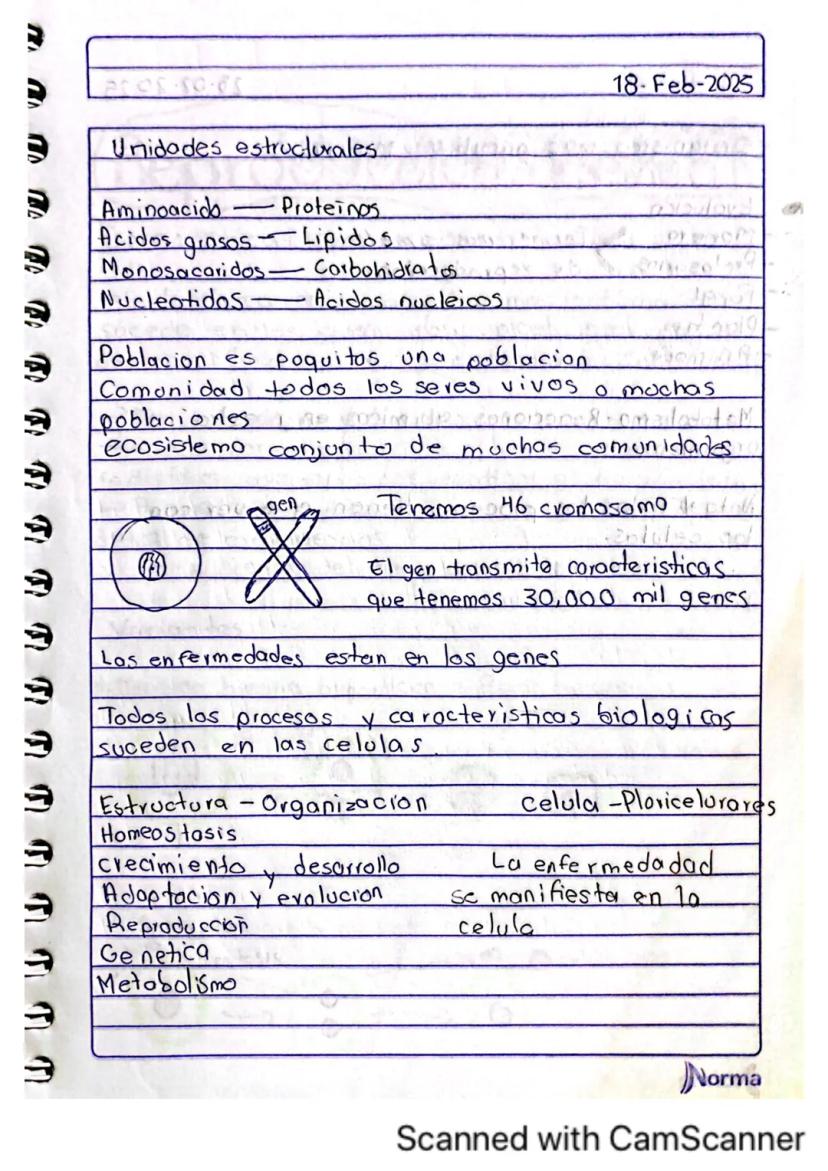 18-Feb-2025
Unidades estructurales
Aminoacido — Proteinas
Acidos grasos — Lipidos
Monosacaridos — Carbohidratos
Nucleotidos — Acidos nucleicos
Poblacion es poquitos una poblacion
Comunidad todos los seres vivos o muchas
poblaciones
ecosistema conjunto de muchas comunidades
gen
Tenemos 46 cromosoma
El gen transmite caracteristicas
que tenemos 30,000 mil genes
Las enfermedades estan en los genes
Todos los procesos y caracteristicas biologicas
suceden en las celulas
Estructura - Organizacion celula - Pluricelurares
Homeostasis
crecimiento y desarrollo La enfermedadad
Adaptacion y evolucion se manifiesta en la
Reproduccion celula
Genetica
Metabolismo
Norma
Scanned with CamScanner